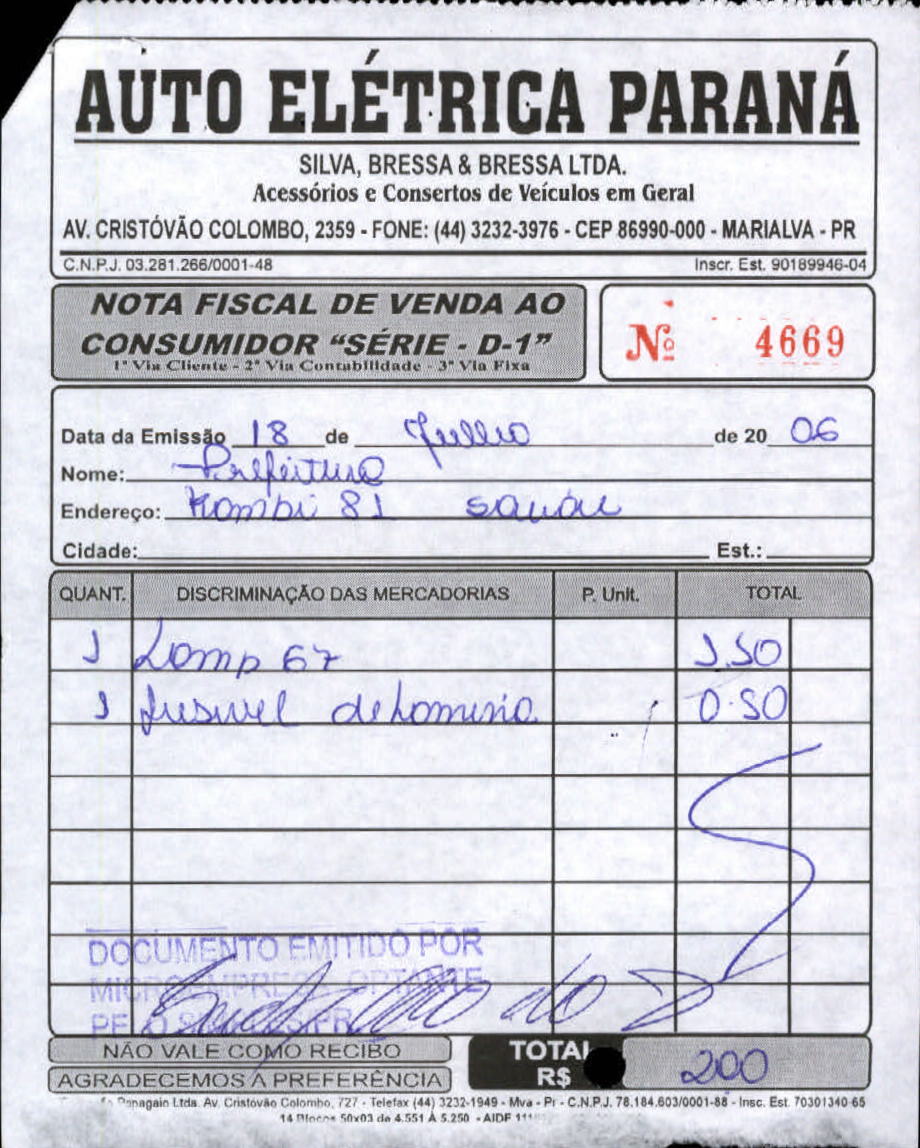 AUTO ELÉTRICA PARANÁ
SILVA, BRESSA & BRESSA LTDA.
Acessórios e Consertos de Veículos em Geral
AV. CRISTÓVÃO COLOMBO, 2359 - FONE: (44) 3232-3976 - CEP 86990-000 - MARIALVA - PR
C.N.P.J. 03.281.266/0001-48 Inscr. Est. 90189946-04
NOTA FISCAL DE VENDA AO
CONSUMIDOR "SÉRIE - D-1"
1ª Via Cliente - 2ª Via Contabilidade - 3ª Via Fixa
Nº 4669
Data da Emissão 18 de Julho de 20 06
Nome: Prefeitura
Endereço: Kombi 81 saude
Cidade: Est.:
QUANT. DISCRIMINAÇÃO DAS MERCADORIAS P. Unit. TOTAL
1 Lamp 67 1.50
1 fusivel de lamina 0.50
DOCUMENTO EMITIDO POR
MICROEMPRESA OPTANTE
NÃO VALE COMO RECIBO
AGRADECEMOS A PREFERÊNCIA
TOTAL
R$ 200
Papagaio Ltda. Av. Cristovão Colombo, 727 - Telefax (44) 3232-1949 - Mva - Pr - C.N.P.J. 78.184.603/0001-88 - Insc. Est. 70301340-65
14 Blocos 50x03 de 4.551 À 5.250 - AIDF